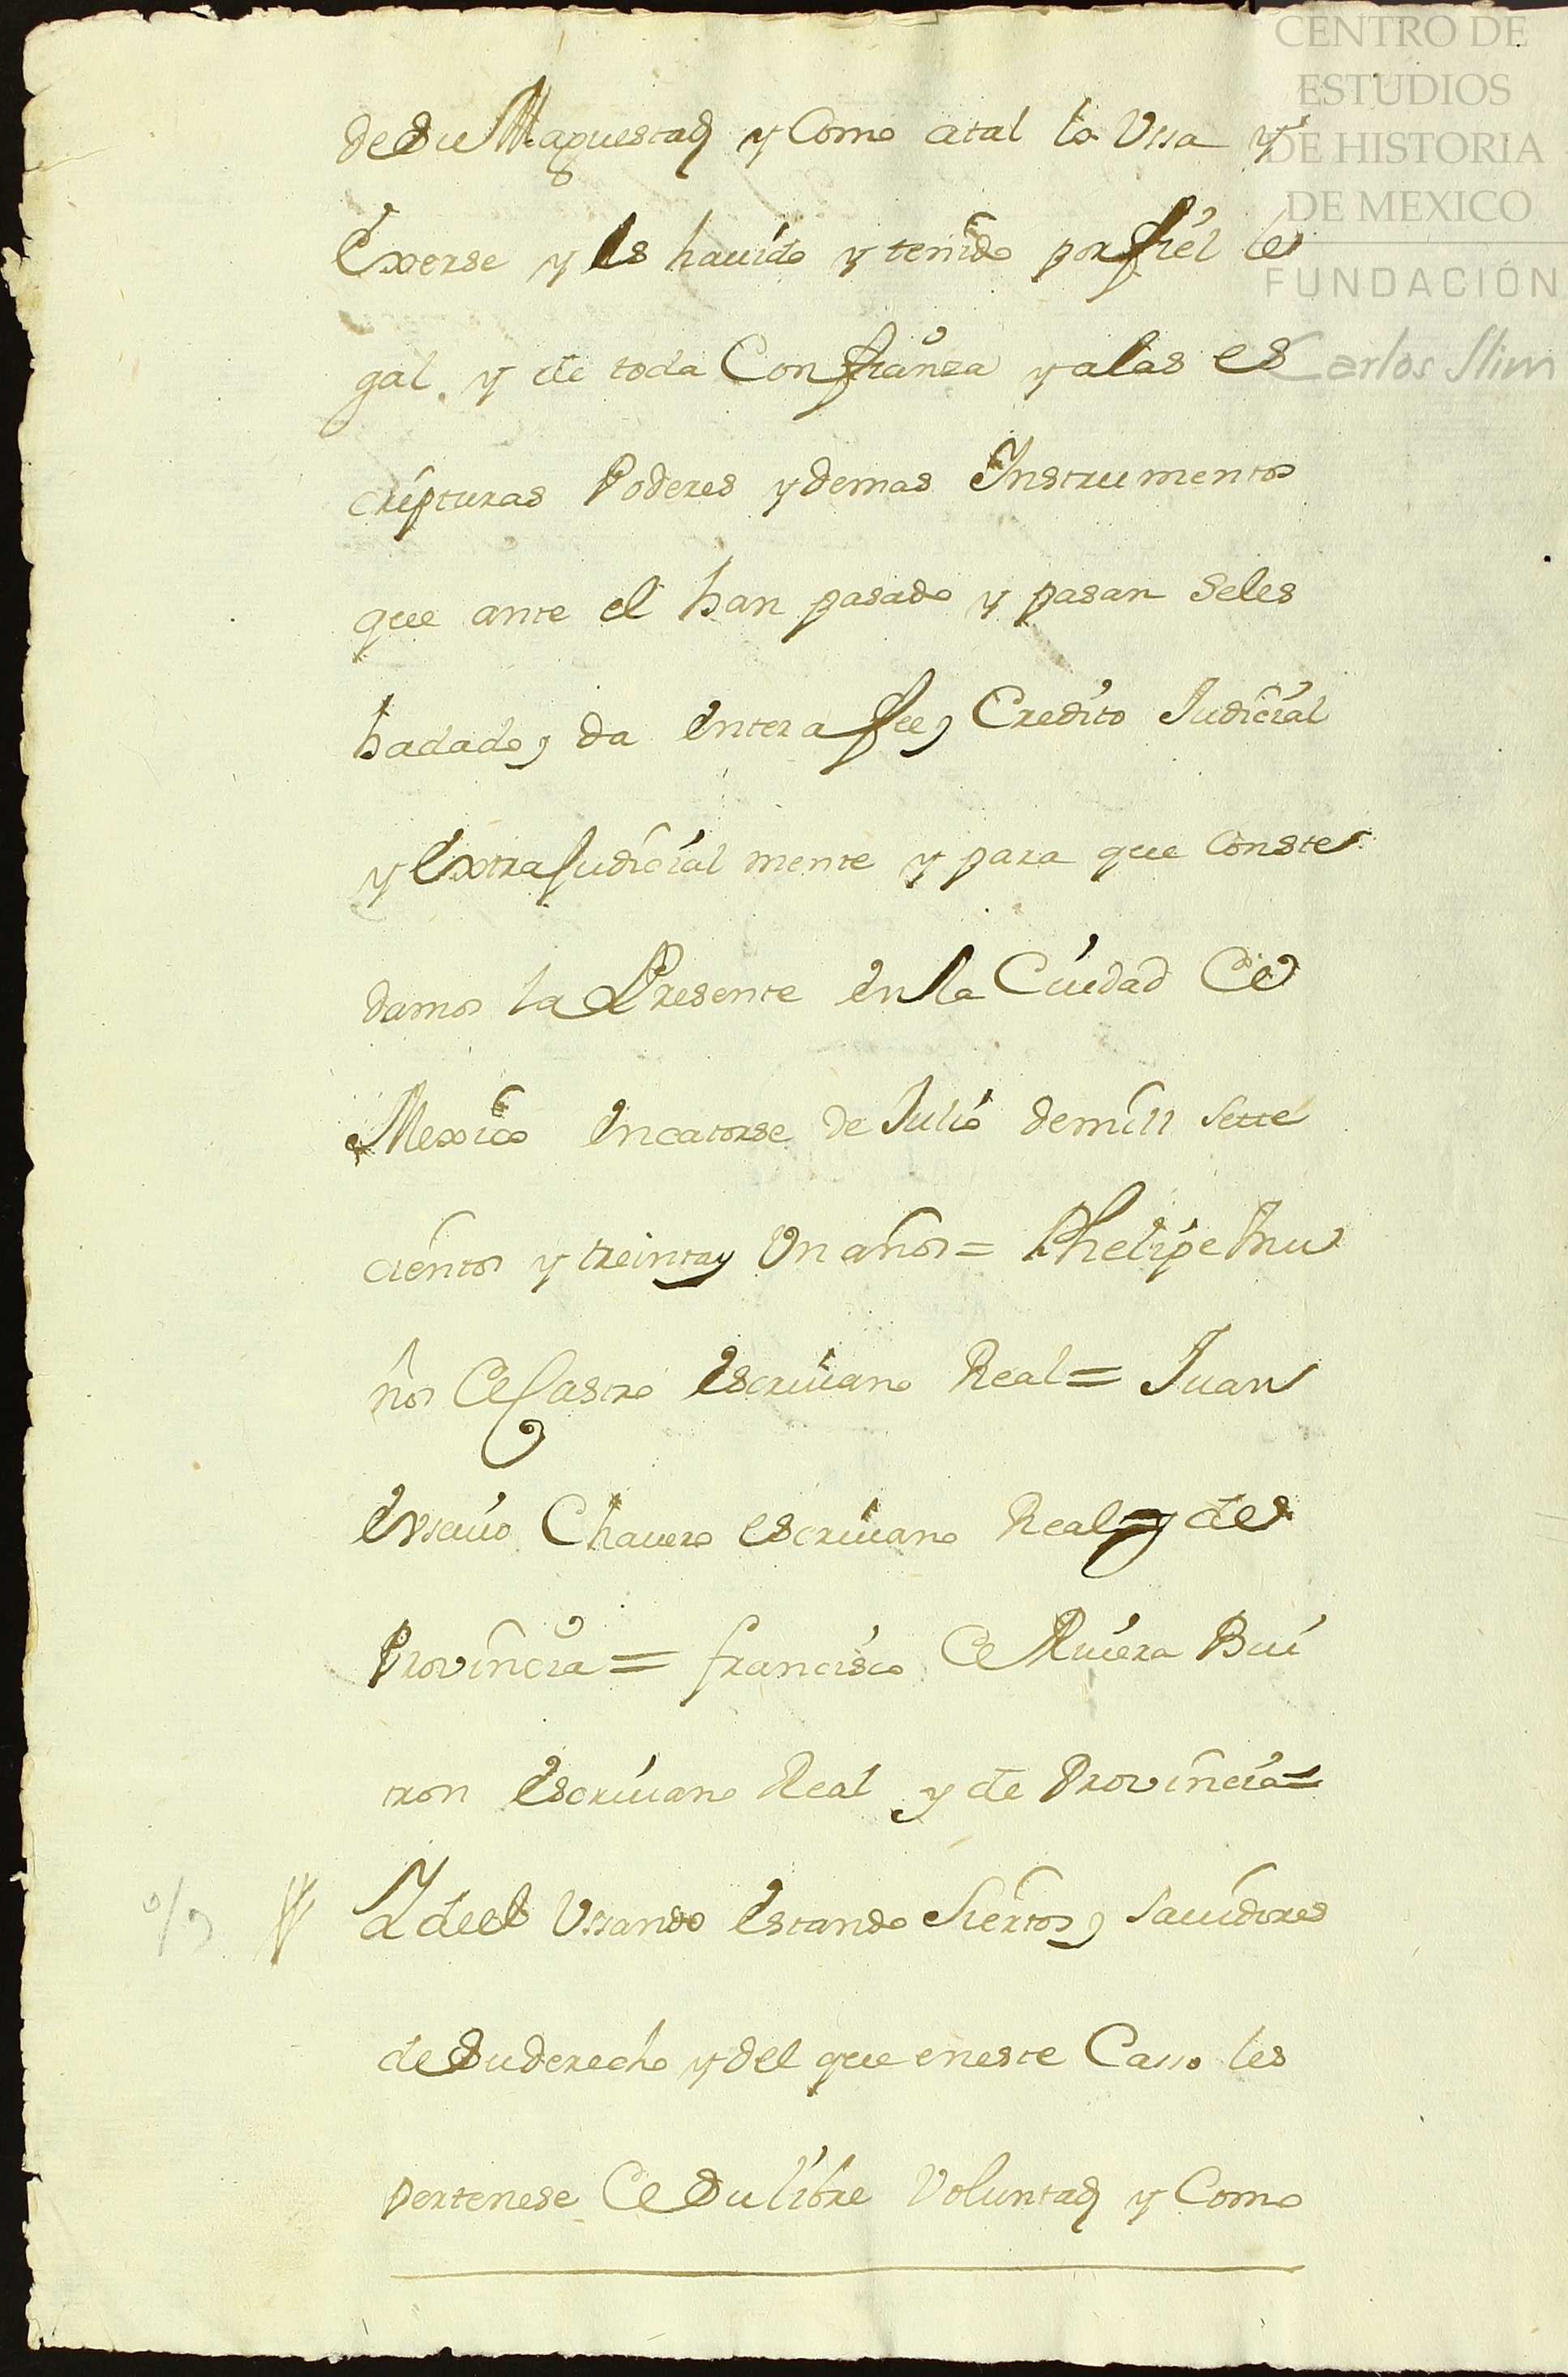 CENTRO DE
ESTUDIOS
DE HISTORIA
DE MEXICO
FUNDACIÓN
Carlos Slim
de Su Maguestad y Como atal lo Ussa y
Exerse y Es hauido y tenido por fiel le
gal y de toda Confianza y alas es
cripturas Poderes y demas Instrumentos
que ante el han pasado y pasan Seles
hadado, da Entera fee, Credito Judicial
y Extrajudicial mente y para que Conste
damos la Presente En la Ciudad de
Mexico En catorse de Julio de mill Sette
cientos y treinta y Un años = Phelipe Mu
ños de Castro Escriuano Real = Juan
Chauero escriuano Real y de
Provincia = francisco de Riuera Bui
tron Escriuano Real y de Provincia =
Y de el Ussando Estando Siertos, Sauidores
de Su derecho y del que eneste Casso les
pertenese de Su libre Voluntad y Como